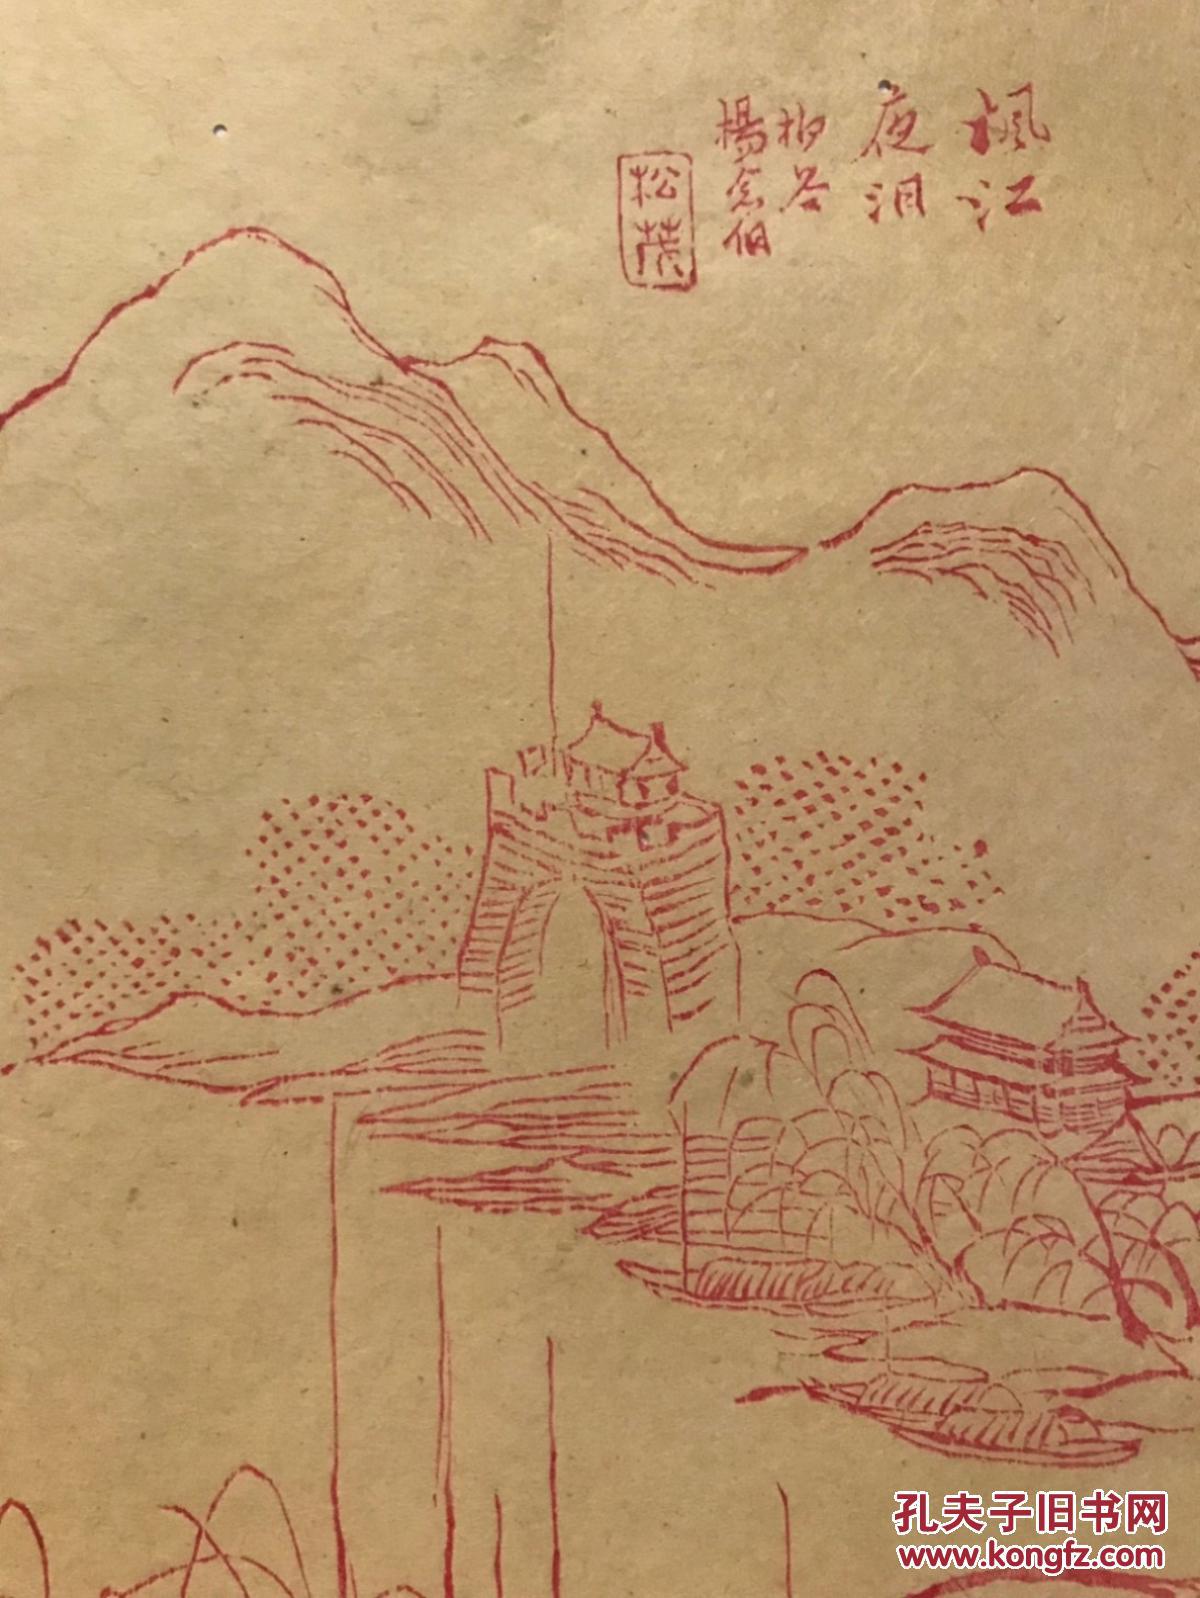 楓江
夜泊
楊念伯
松茂
孔夫子旧书网
www.kongfz.com